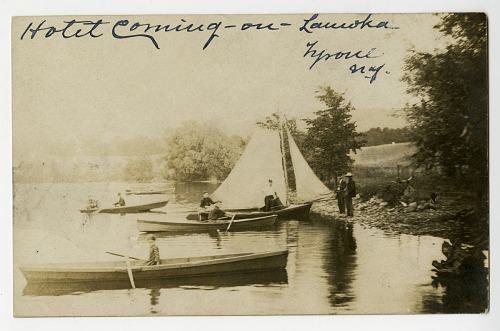 Hotel Coming-on-Lamoka
Tyrone
N.Y.